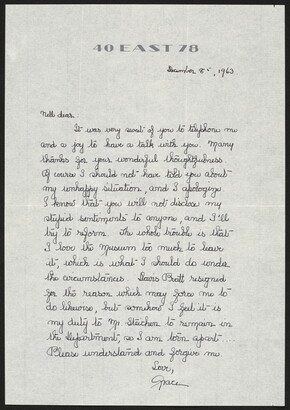 40 EAST 78
December 8th, 1963
Nell dear,
It was very sweet of you to telephone me
and a joy to have a talk with you. Many
thanks for your wonderful thoughtfulness.
Of course I should not have told you about
my unhappy situation, and I apologize.
I know that you will not disclose my
stupid sentiments to anyone, and I'll
try to reform. The whole trouble is that
I love the Museum too much to leave
it, which is what I should do under
the circumstances. Davis Pratt resigned
for the reason which may force me to
do likewise, but somehow I feel it is
my duty to Mr. Steichen to remain in
the Department, so I am torn apart....
Please understand and forgive me.
Love,
Grace